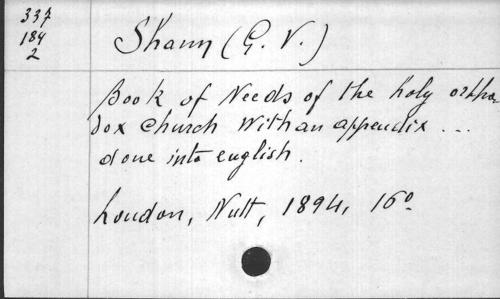 337
184
2
Shann (G. V.)
Book of Needs of the holy ortho-
dox church with an appendix ...
done into english.
London, Nutt, 1894, 16º.